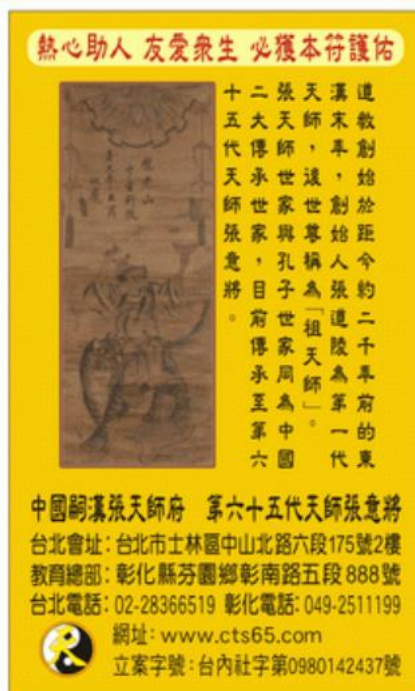 熱心助人 友愛衆生 必獲本符護佑
道教創始於距今約二千年前的東
漢末年，創始人張道陵為第一代
天師，後世尊稱為「祖天師」。
張天師世家與孔子世家同為中國
二大傳承世家，目前傳承至第六
十五代天師張意將。
中國嗣漢張天師府 第六十五代天師張意將
台北會址：台北市士林區中山北路六段175號2樓
教育總部：彰化縣芬園鄉彰南路五段888號
台北電話：02-28366519 彰化電話：049-2511199
網址：www.cts65.com
立案字號：台內社字第0980142437號